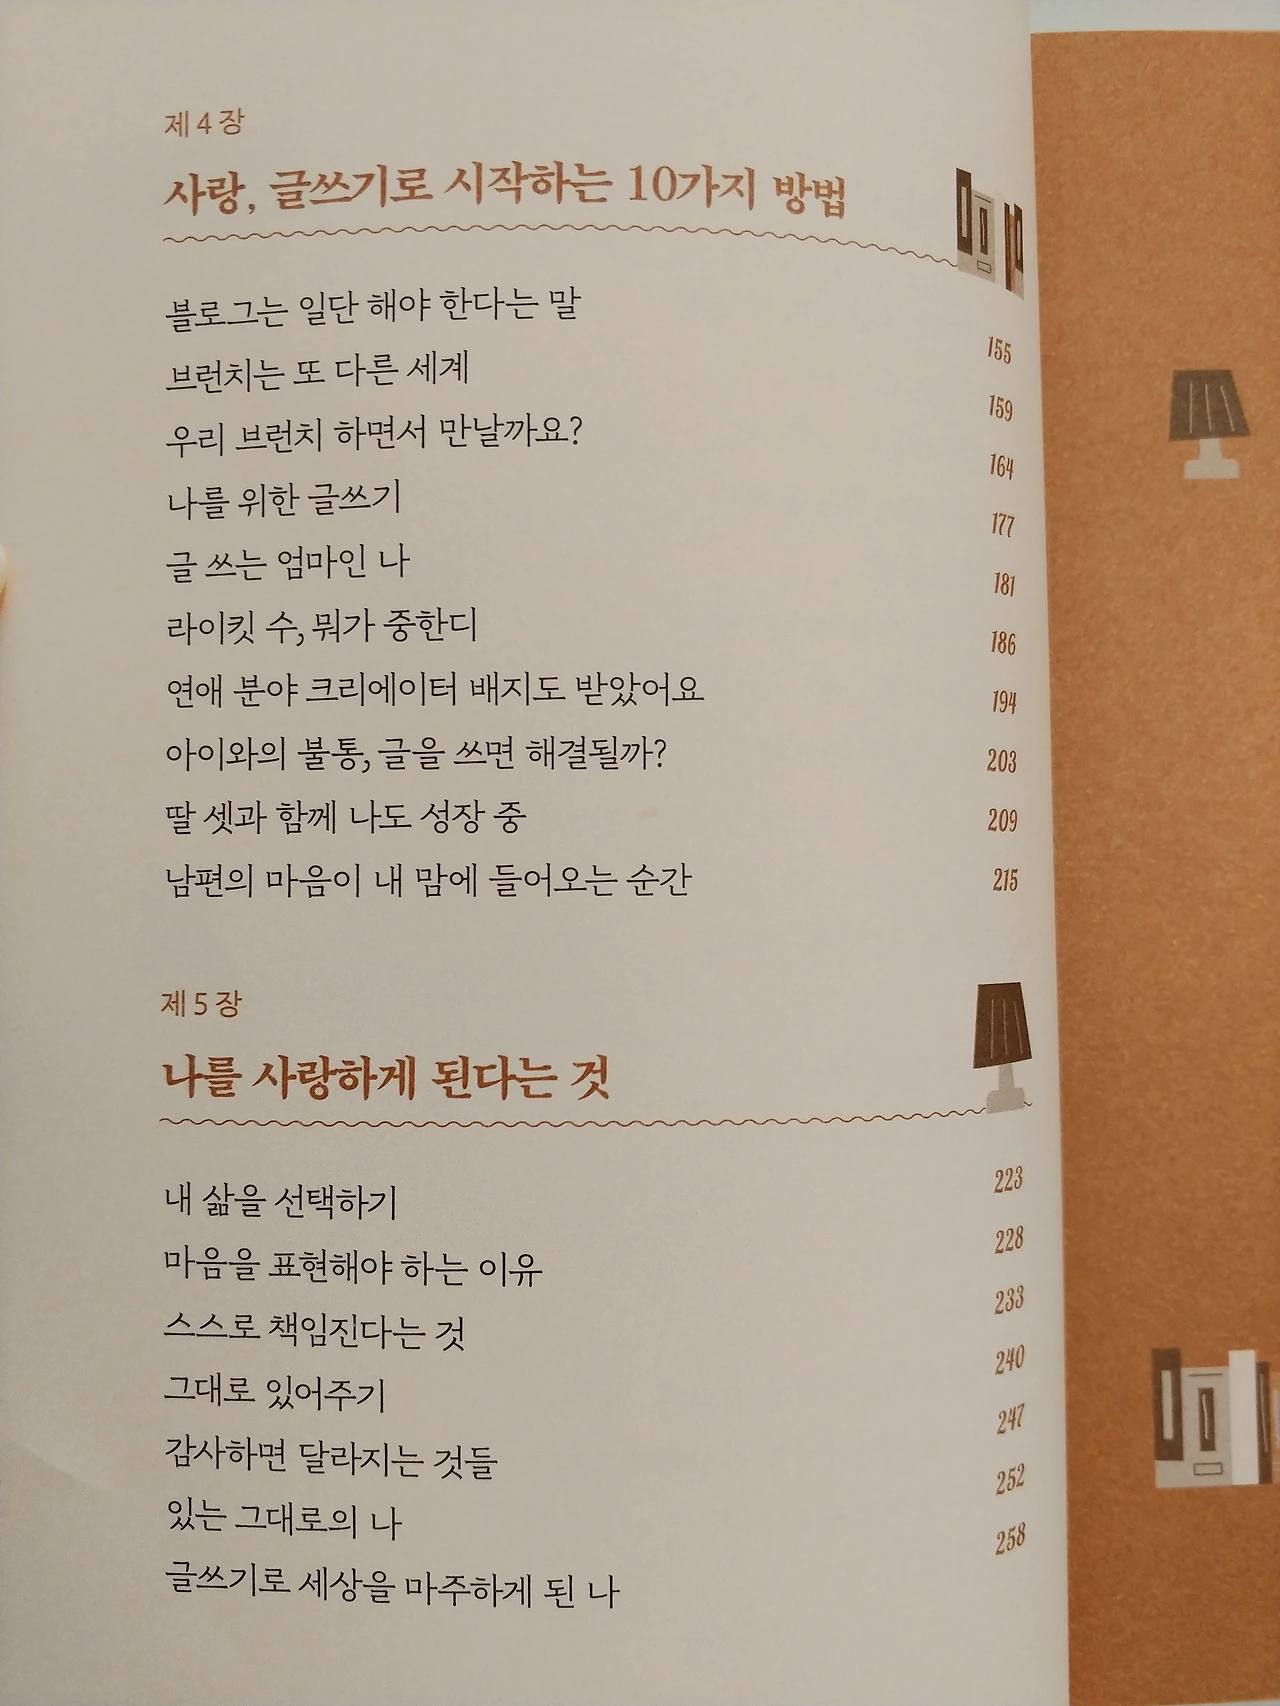 제4장
사랑, 글쓰기로 시작하는 10가지 방법
블로그는 일단 해야 한다는 말 155
브런치는 또 다른 세계 159
우리 브런치 하면서 만날까요? 164
나를 위한 글쓰기 177
글 쓰는 엄마인 나 181
라이킷 수, 뭐가 중한디 186
연애 분야 크리에이터 배지도 받았어요 194
아이와의 불통, 글을 쓰면 해결될까? 203
딸 셋과 함께 나도 성장 중 209
남편의 마음이 내 맘에 들어오는 순간 215
제5장
나를 사랑하게 된다는 것
내 삶을 선택하기 223
마음을 표현해야 하는 이유 228
스스로 책임진다는 것 233
그대로 있어주기 240
감사하면 달라지는 것들 247
있는 그대로의 나 252
글쓰기로 세상을 마주하게 된 나 258